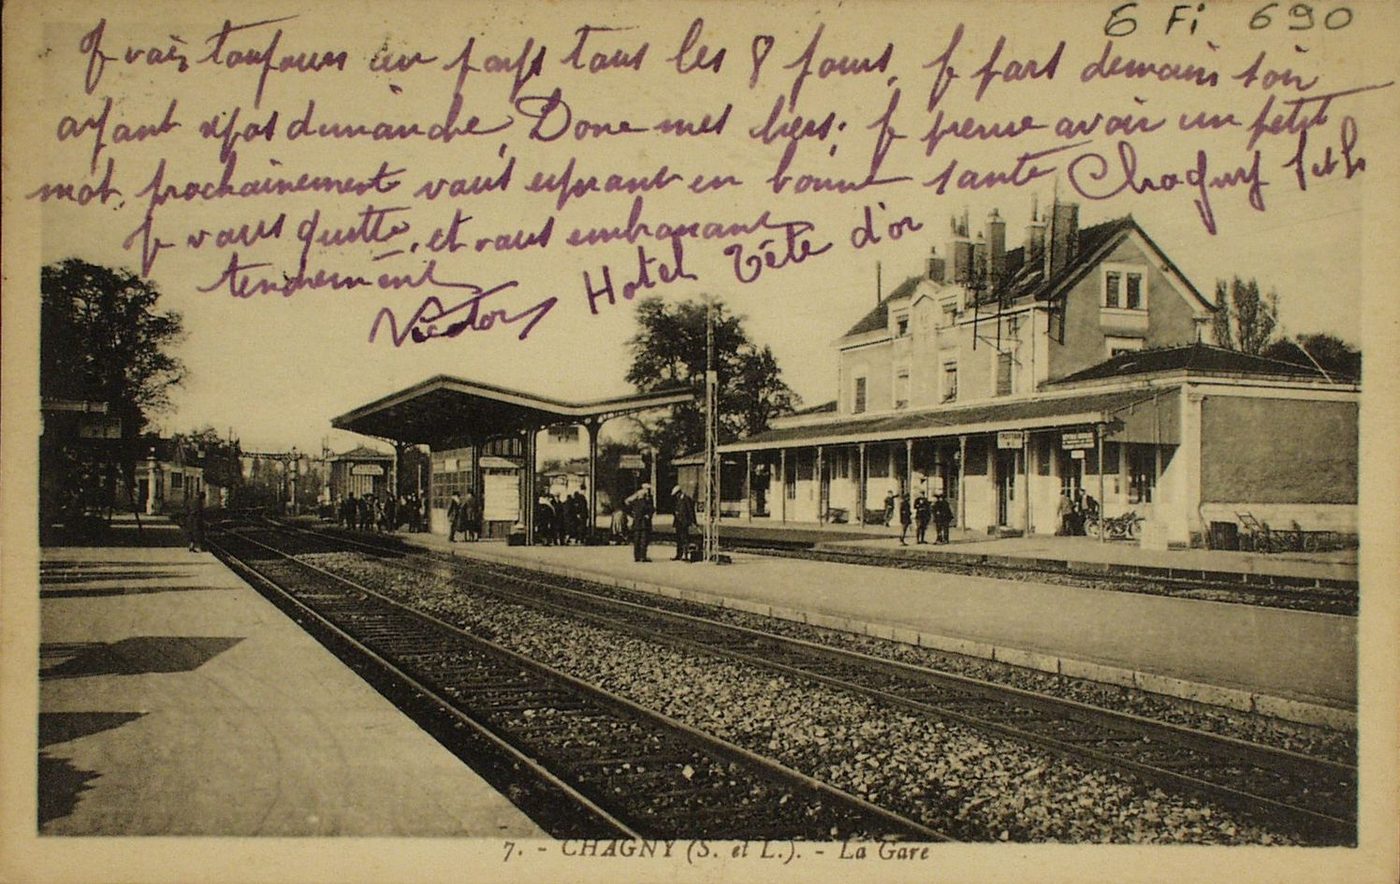 6 Fi 690
Je vais toujours au pays tous les 8 jours, Je pars demain soir
ayant repos dimanche, Donc mes chers; Je pense avoir un petit
mot, prochainement vous esperant en bonne santé Chagny S et L
Je vous quitte, et vous embrassant
tendrement
Victor Hotel Tête d'or
7. - CHAGNY (S. et L.). - La Gare